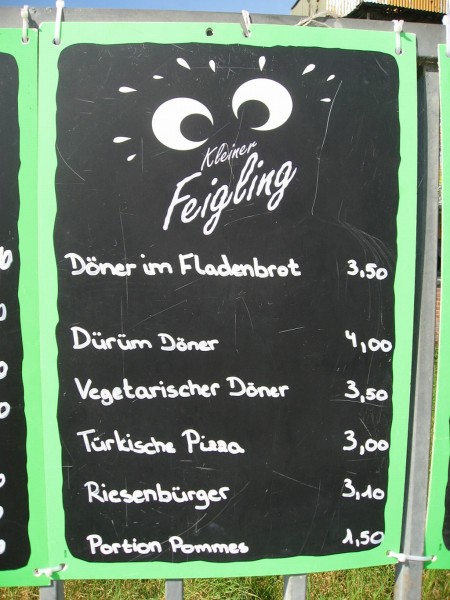 Kleiner
Feigling
Döner im Fladenbrot 3,50
Dürüm Döner 4,00
Vegetarischer Döner 3,50
Türkische Pizza 3,00
Riesenbürger 3,10
Portion Pommes 1,50